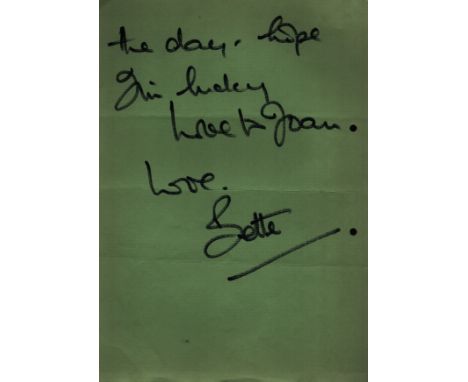 the day. hope
I'm lucky
Love to Joan.
Love.
Bette.